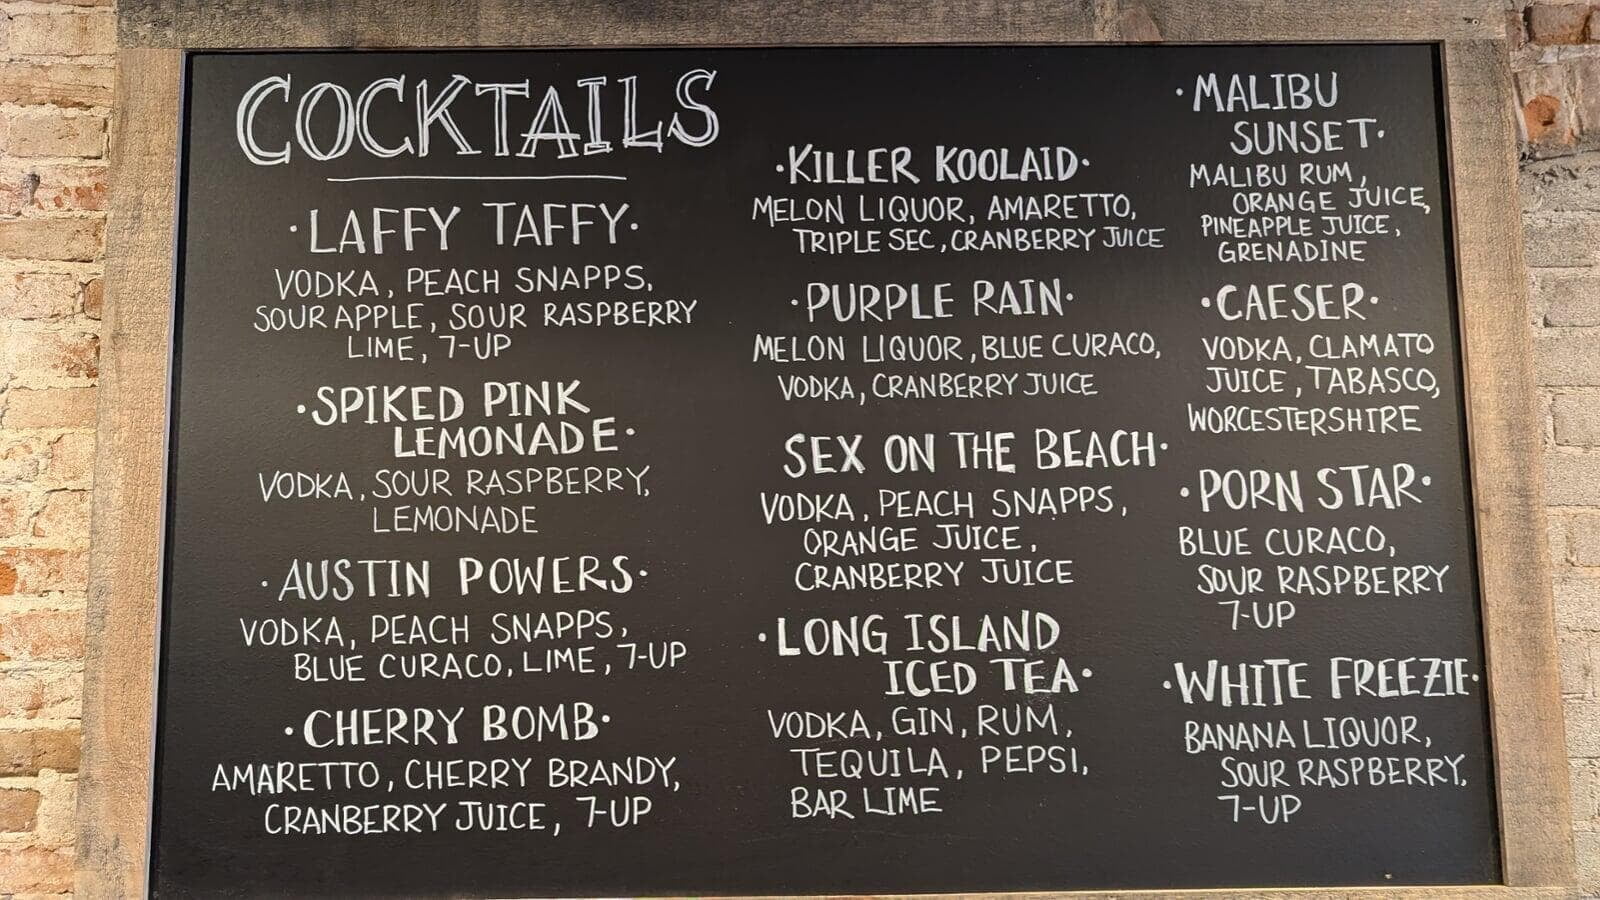 COCKTAILS
·LAFFY TAFFY·
VODKA, PEACH SNAPPS,
SOUR APPLE, SOUR RASPBERRY
LIME, 7-UP
·SPIKED PINK
LEMONADE·
VODKA, SOUR RASPBERRY,
LEMONADE
·AUSTIN POWERS·
VODKA, PEACH SNAPPS,
BLUE CURACO, LIME, 7-UP
·CHERRY BOMB·
AMARETTO, CHERRY BRANDY,
CRANBERRY JUICE, 7-UP
·KILLER KOOLAID·
MELON LIQUOR, AMARETTO,
TRIPLE SEC, CRANBERRY JUICE
·PURPLE RAIN·
MELON LIQUOR, BLUE CURACO,
VODKA, CRANBERRY JUICE
SEX ON THE BEACH·
VODKA, PEACH SNAPPS,
ORANGE JUICE,
CRANBERRY JUICE
·LONG ISLAND
ICED TEA·
VODKA, GIN, RUM,
TEQUILA, PEPSI,
BAR LIME
·MALIBU
SUNSET·
MALIBU RUM,
ORANGE JUICE,
PINEAPPLE JUICE,
GRENADINE
·CAESER·
VODKA, CLAMATO
JUICE, TABASCO,
WORCESTERSHIRE
·PORN STAR·
BLUE CURACO,
SOUR RASPBERRY
7-UP
·WHITE FREEZIE·
BANANA LIQUOR,
SOUR RASPBERRY,
7-UP